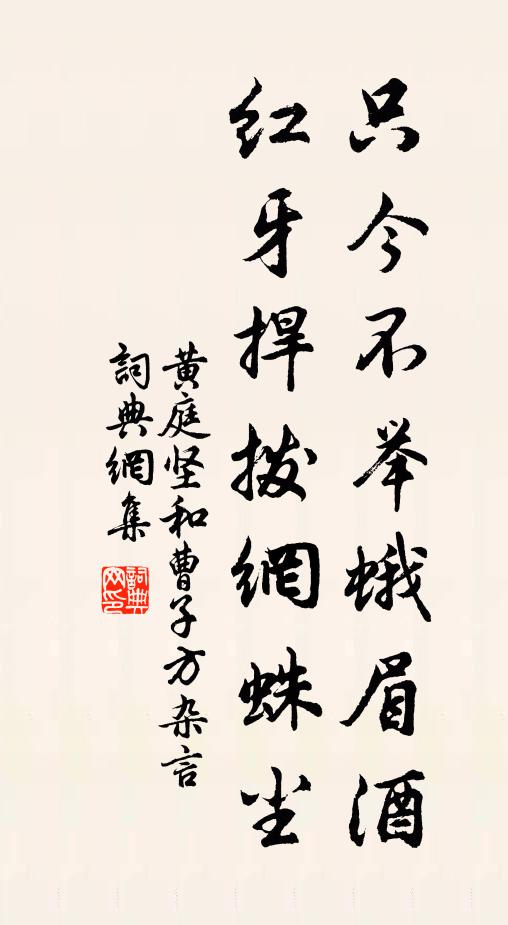 只今不举蛾眉酒
红牙捍拨網蛛尘
黄庭坚和曹子方杂言
詞典網集
詞典
网印